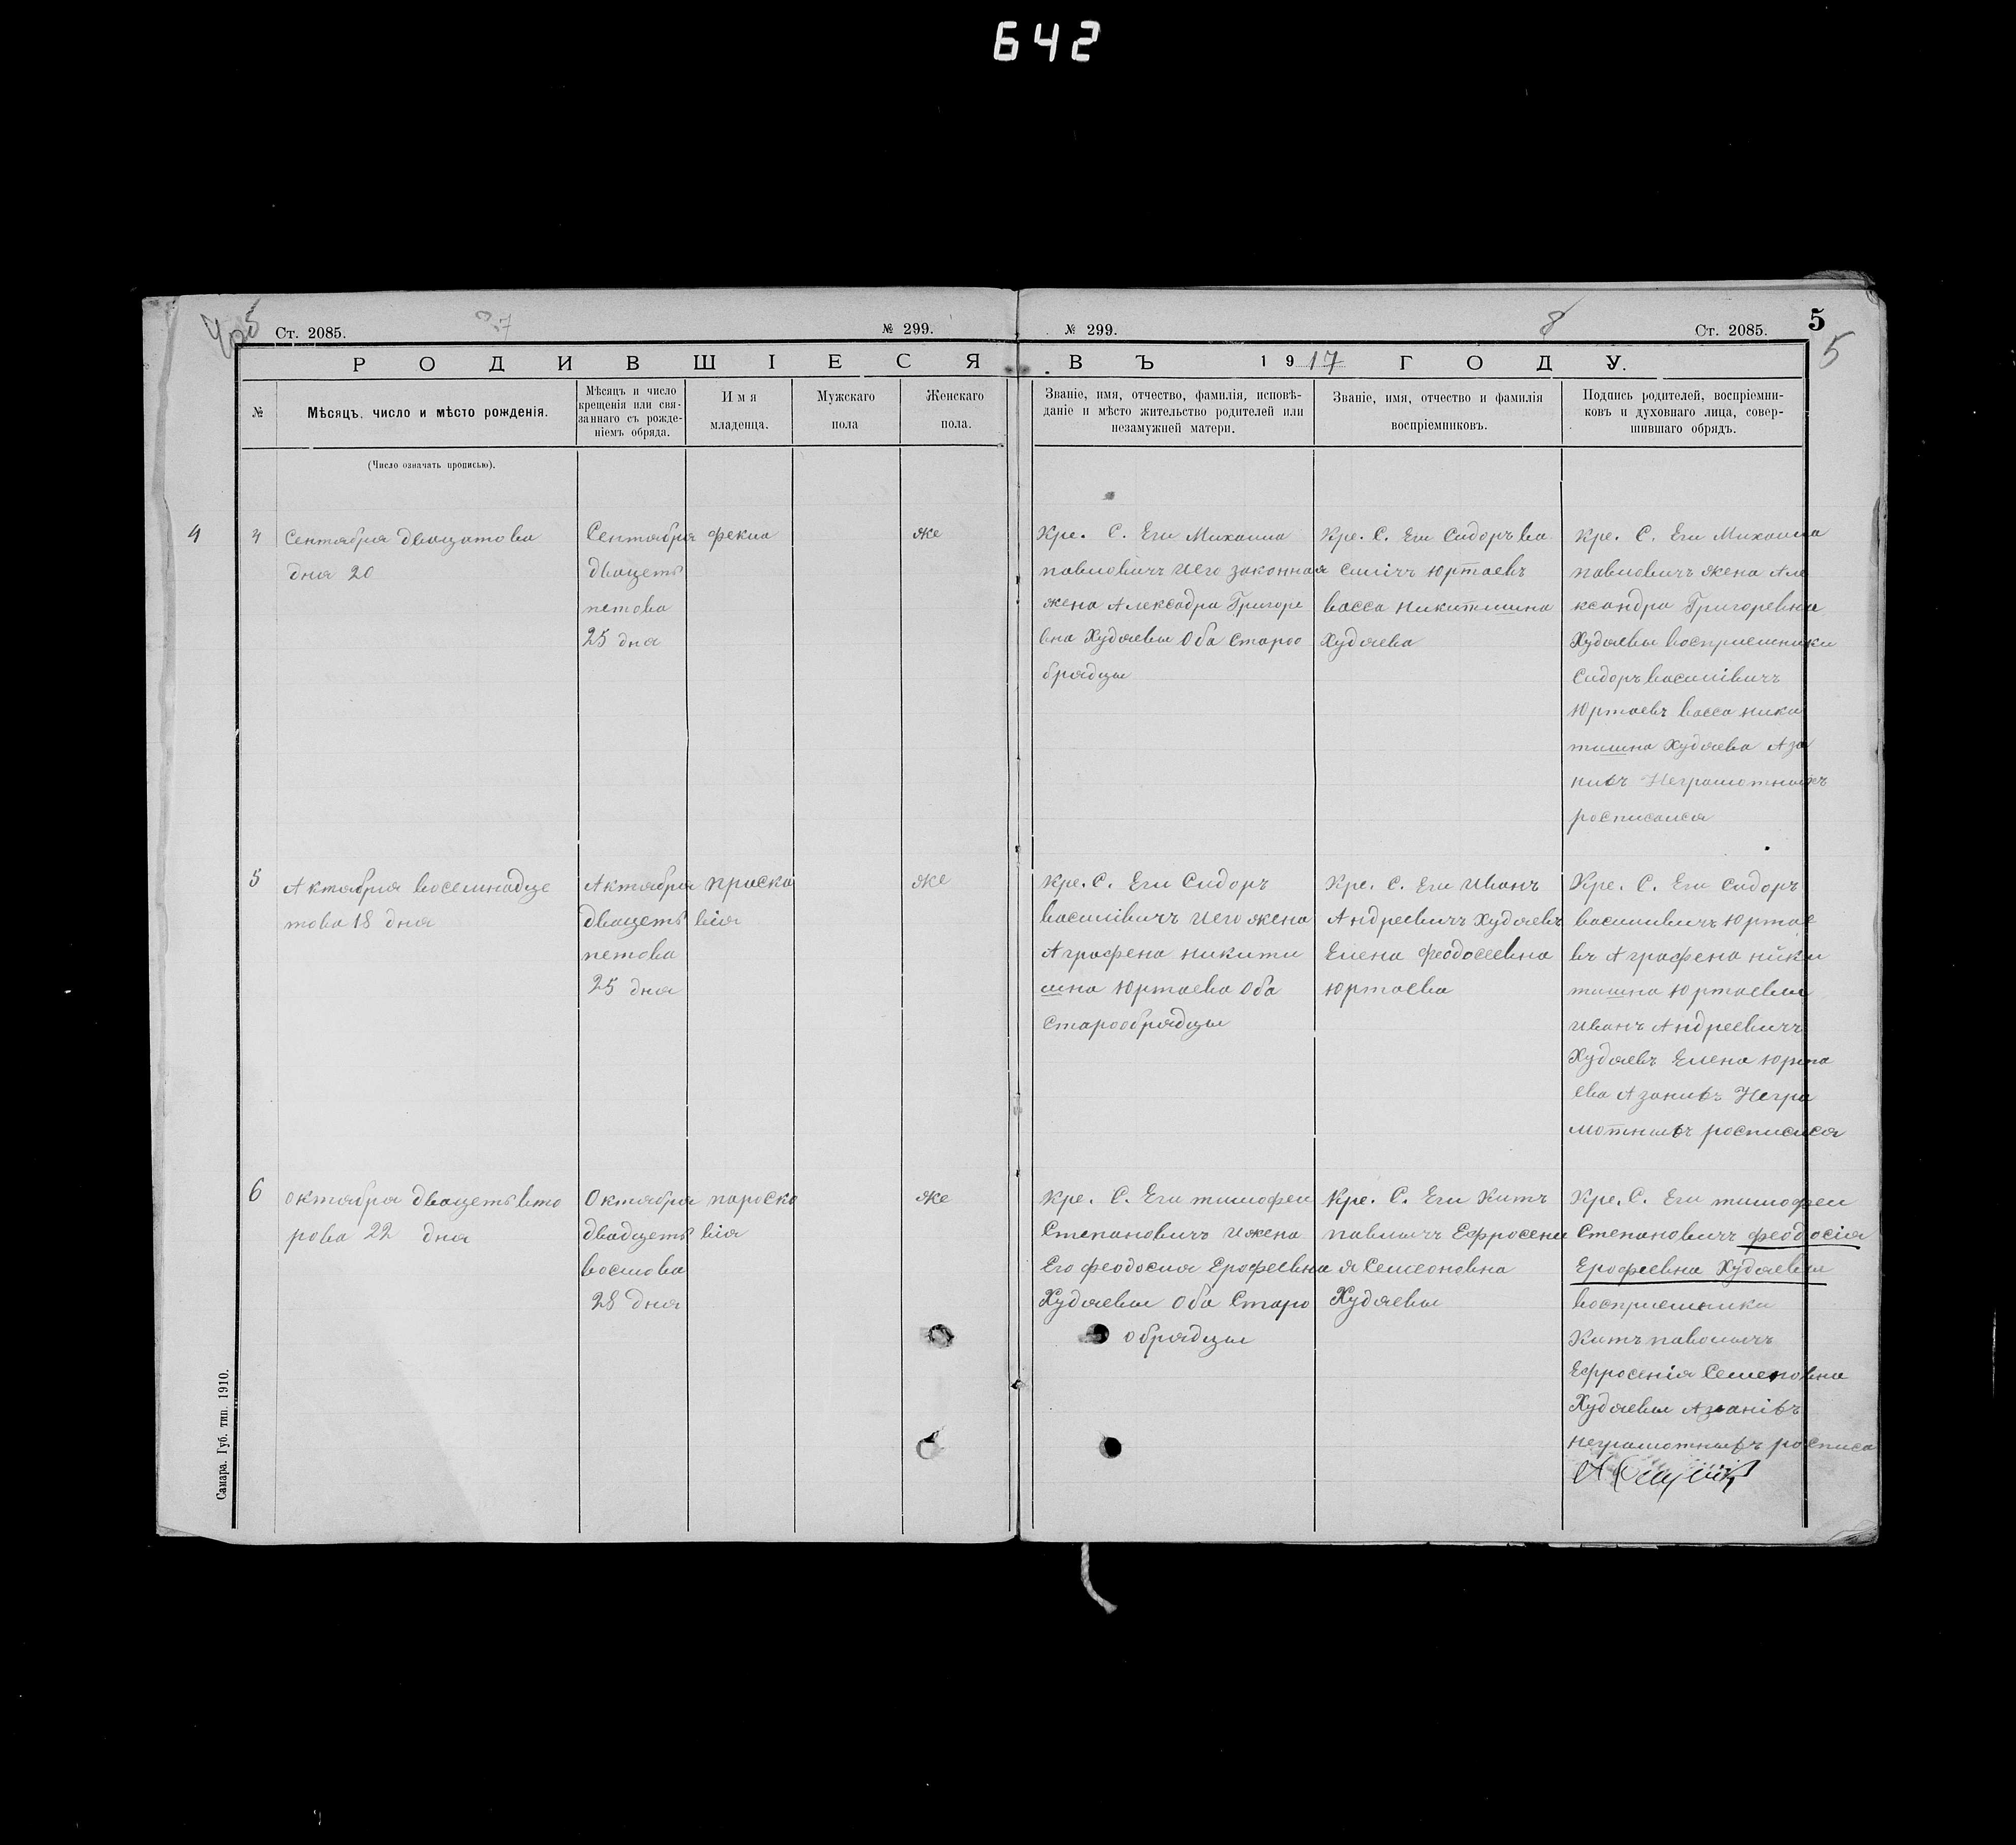 642
5
Ст. 2085.
№ 299.
№ 299.
8
Ст. 2085.
5
5
РОДИВШІЕСЯ ВЪ 1917 ГОДУ.
№
Мѣсяцъ, число и мѣсто рожденія.
Мѣсяцъ и число
крещенія или свя-
заннаго съ рожде-
ніемъ обряда.
Имя
младенца.
Мужскаго
пола
Женскаго
пола.
Званіе, имя, отчество, фамилія, исповѣ-
даніе и мѣсто жительство родителей или
незамужней матери.
Званіе, имя, отчество и фамилія
воспріемниковъ.
Подпись родителей, воспріемни-
ковъ и духовнаго лица, совер-
шившаго обрядъ.
(Число означать прописью).
4
4
Сентября двацатова
дня 20
Сентября
двацеть
петова
25 дня
фекла
же
Кре. С. Еги Михаила
павловичъ иего законная
жена Александра Григоре
вна Худяевы Оба Старо
брядцы
Кре. С. Еги Сидоръ ва
силічъ Юртаевъ
васса никитишна
Худяева
Кре. С. Еги Михаила
павловичъ жена Але
ксандра Григоревна
Худяевы восприемники
Сидоръ василівичъ
Юртаевъ васса ники
тишна Худяева Аза
нивъ Неграмотныхъ
росписался
5
Актября восемнадце
това 18 дня
Актября
двацеть
петова
25 дня
праско
вія
же
Кре. С. Еги Сидоръ
василівичъ иего жена
Аграфена никити
шна Юртаева Оба
Старообрядцы
Кре. С. Еги Иванъ
Андреевичъ Худяевъ
Елена феодосеевна
Юртаева
Кре. С. Еги Сидоръ
василивичъ Юртае
въ Аграфена ники
тишна Юртаевы
Иванъ Андреевичъ
Худяевъ Елена Юрта
ева Азанивъ Негра
мотныхъ росписися
6
Октября двацеть вто
рова 22 дня
Октября
двадцеть
восмова
28 дня
пароско
вія
же
Кре. С. Еги тимофеи
Степановичъ ижена
Его феодосия Ерофеевна
Худяевы Оба Старо
обрядцы
Кре. С. Еги Китъ
павлычъ Ефросени
я Семеоновна
Худяевы
Кре. С. Еги тимофеи
Степановичъ феодосія
Ерофеевна Худяевы
восприемники
Китъ павлычъ
Ефросенія Семеновна
Худяевы Азанівъ
неграмотныхъ росписа
Самара. Губ. тип. 1910.